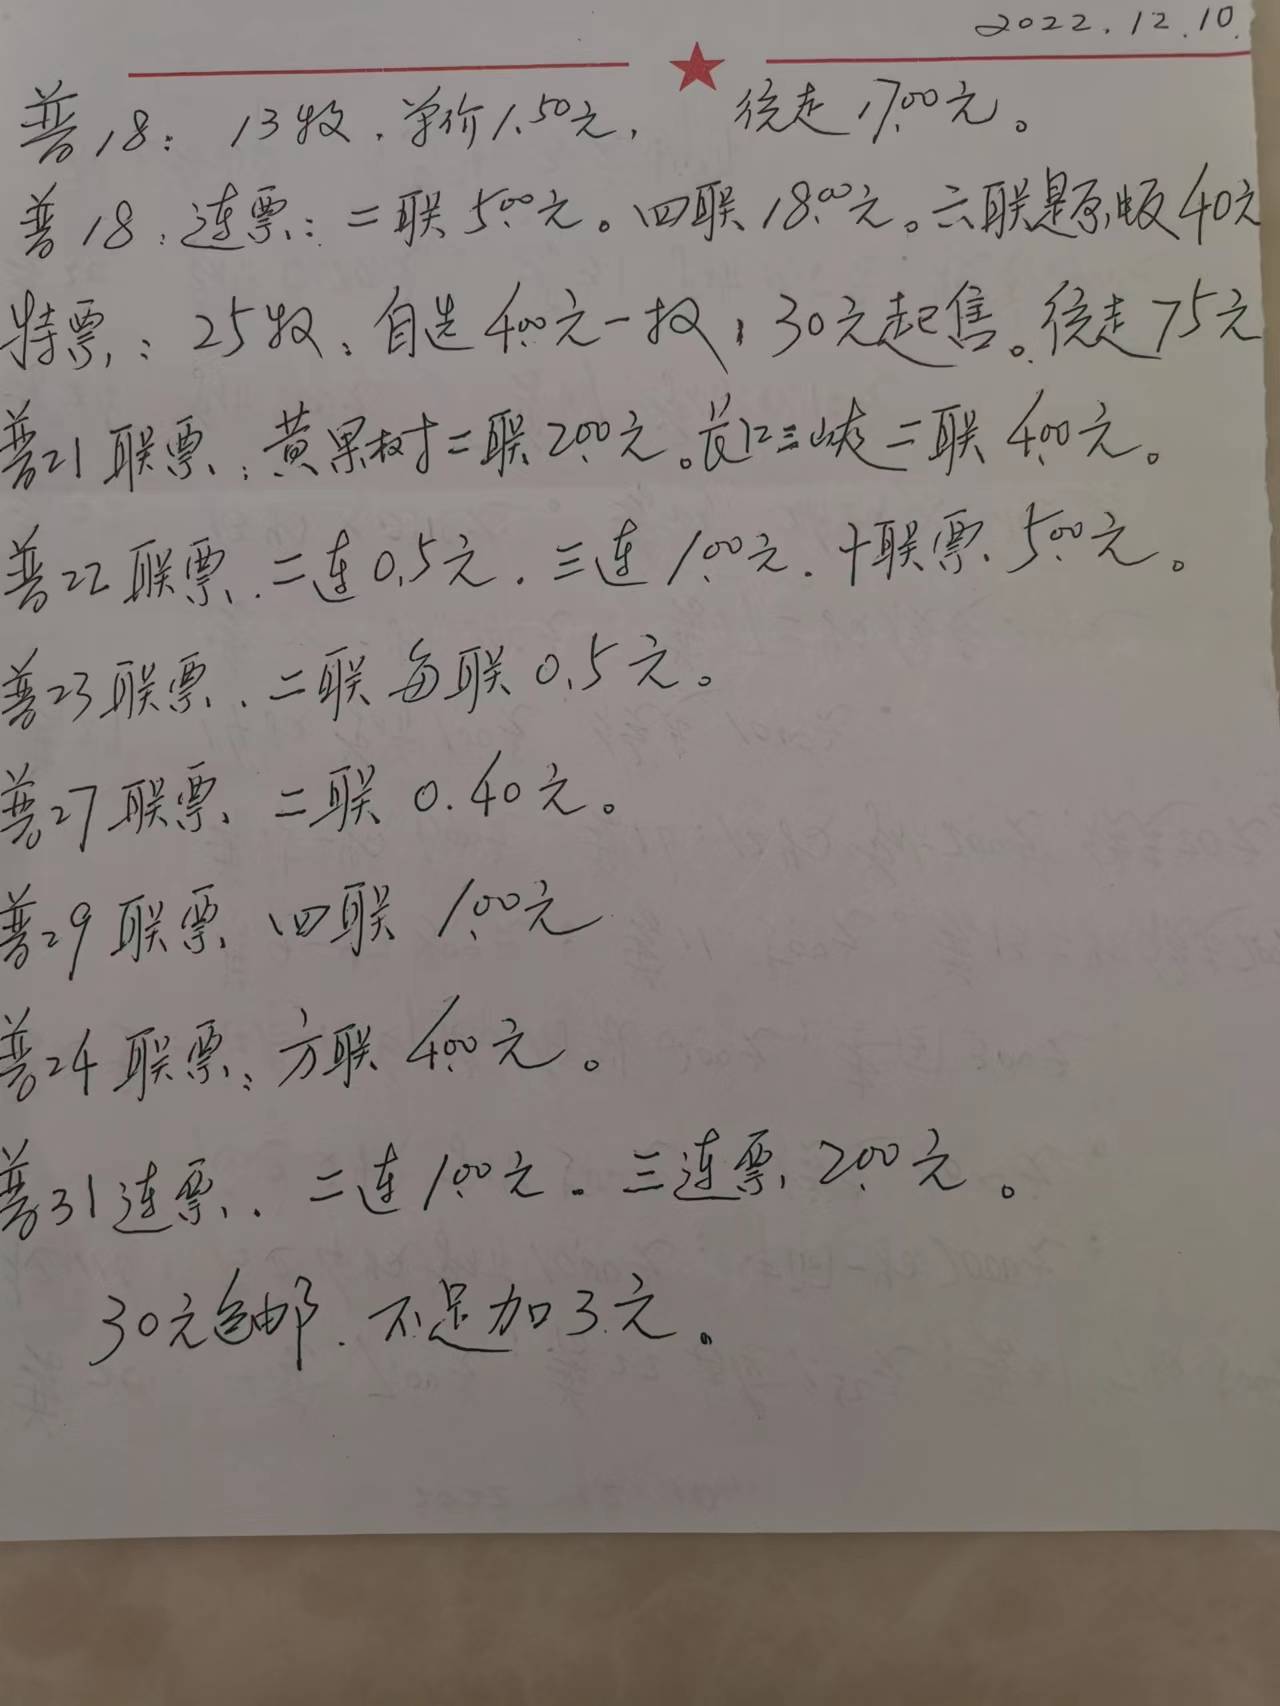 2022.12.10.
普18: 13枚.单价1.50元, 统走17.00元。
普18.连票:二联5.00元。四联18.00元。六联是原版40元
特票:25枚.自选4.00元一枚,30元起售。统走75元
普21联票:黄果树二联2.00元。长江三峡二联4.00元。
普22联票.二连0.5元.三连1.00元.十联票5.00元。
普23联票.二联每联0.5元。
普27联票 二联0.40元。
普29联票 四联 1.00元
普24联票:方联4.00元。
普31连票.二连1.00元.三连票2.00元。
30元包邮.不足加3元。